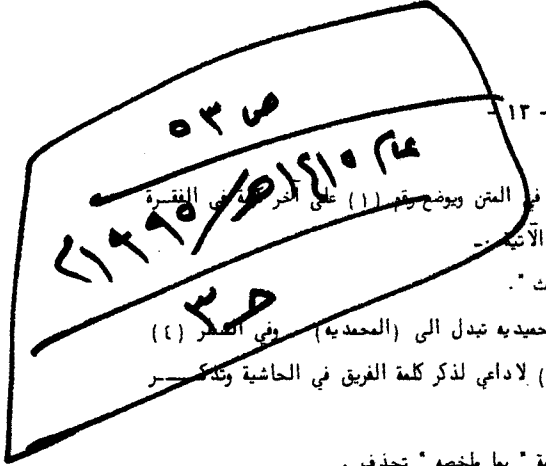 ص ٥٣
- ١٣ -
عام ١٤١٥هـ/١٩٩٥م
في المتن ويوضع رقم (١) على آخر في الفقــرة
الآتية :-
ث ".
حـ ٣
حميديه تبدل الى (المحمديه) وفي السطر (٤)
) لاداعي لذكر كلمة الفريق في الحاشية وتذكــــر
ية " بما ملخصه " تحذف .